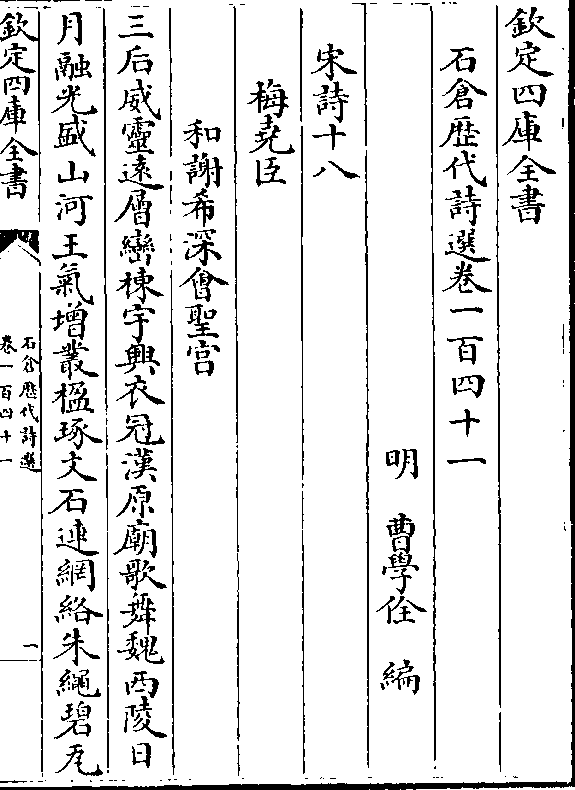 欽定四庫全書
石倉歴代詩選卷一百四十一
明 曹學佺 編
宋詩十八
梅堯臣
和謝希深會聖宫
三后威靈逺層巒棟宇興衣冠漢原廟歌舞魏西陵日
月融光盛山河王氣增叢楹琢文石連網絡朱繩碧瓦
欽定四庫全書
石倉歴代詩選
卷一百四十一
一